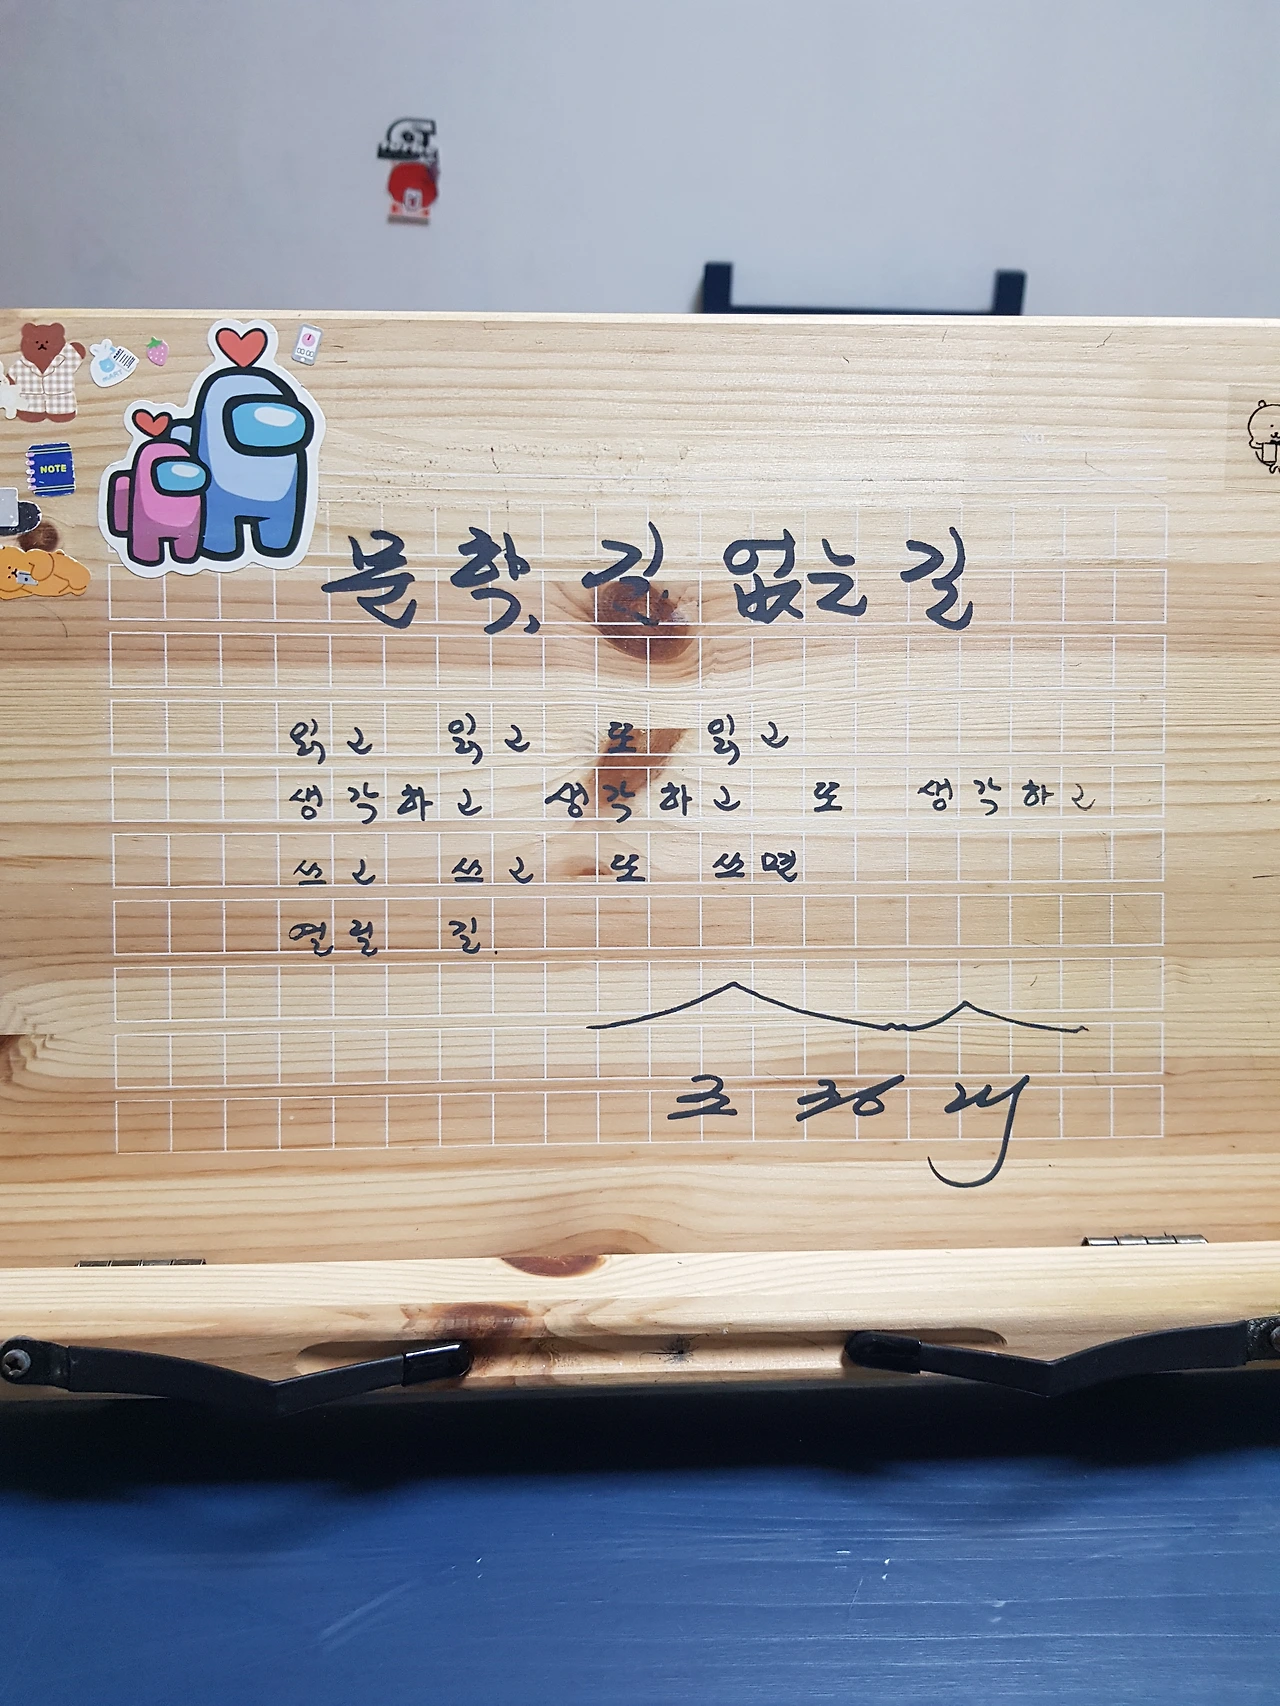 NOTE
문학, 길 없는 길
읽고 읽고 또 읽고
생각하고 생각하고 또 생각하고
쓰고 쓰고 또 쓰면
열릴 길.
조정래